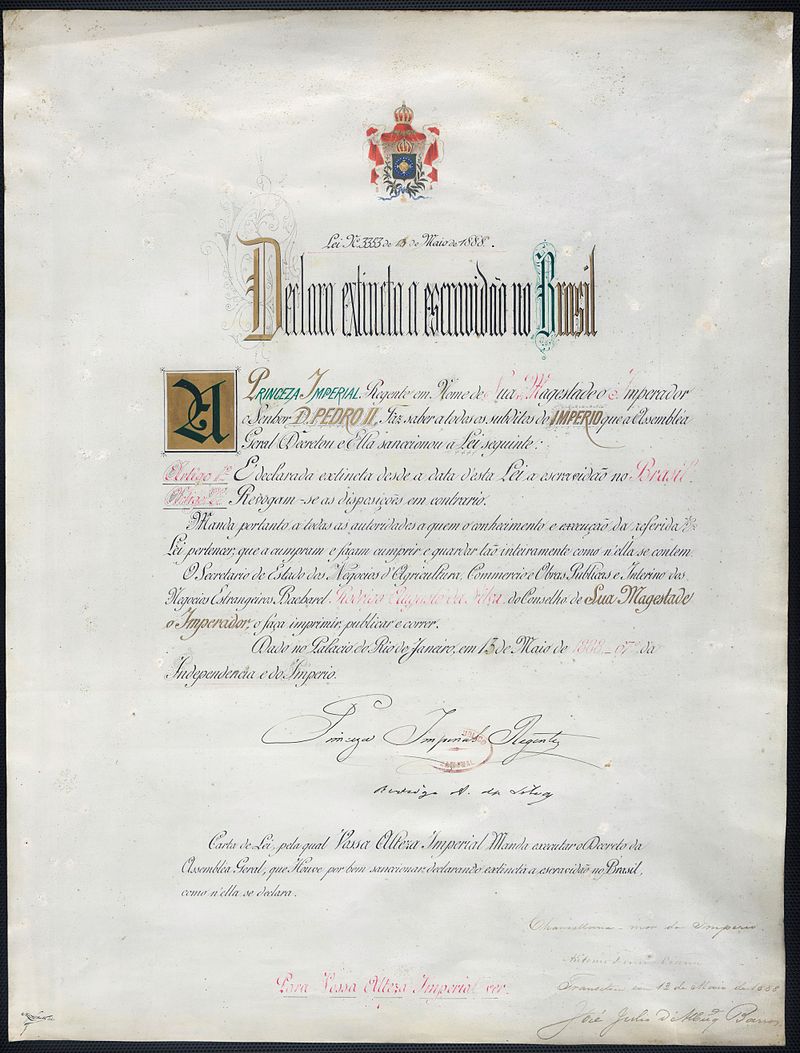 Lei Nº 3353 de 13 de Maio de 1888.
Declara extincta a escravidão no Brasil
A PRINCEZA IMPERIAL Regente em Nome de Sua Magestade o Imperador
o Senhor D. PEDRO II, Faz saber a todos os subditos do IMPERIO que a Assembléa
Geral Decretou e Ella sanccionou a Lei seguinte:
Artigo 1º É declarada extincta desde a data d'esta Lei a escravidão no Brasil.
Artigo 2º Revogam-se as disposições em contrario.
Manda portanto a todas as autoridades a quem o conhecimento e execução da referida
Lei pertencer, que a cumpram e façam cumprir e guardar tão inteiramente como n'ella se contem
O Secretario de Estado dos Negocios d'Agricultura, Commercio e Obras Publicas e Interino dos
Negocios Estrangeiros Bacharel Rodrigo Augusto da Silva, do Conselho de Sua Magestade
o Imperador, o faça imprimir, publicar e correr.
Dado no Palacio do Rio de Janeiro, em 13 de Maio de 1888 – 67º da
Independencia e do Imperio.
Princeza Imperial Regente
Rodrigo A. da Silva
Carta de Lei, pela qual Vossa Alteza Imperial Manda executar o Decreto da
Assembléa Geral, que Houve por bem sanccionar, declarando extincta a escravidão no Brasil,
como n'ella se declara.
Chancellaria-mór do Imperio.
Antonio Ferreira Vianna
Transitou em 13 de Maio de 1888
José Julio d'Albuqe Barros
Para Vossa Alteza Imperial ver.